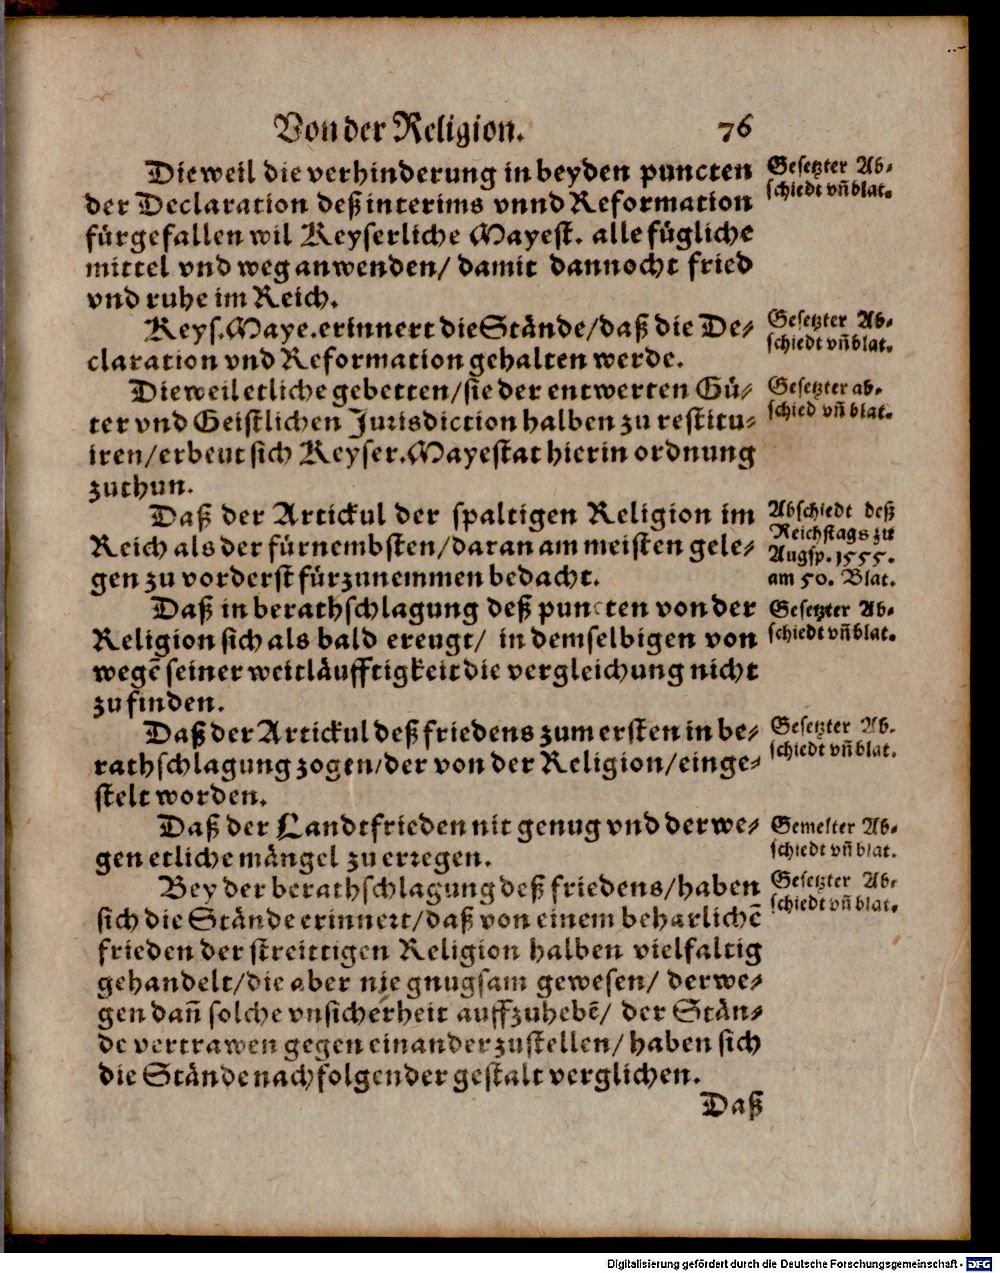 Von der Religion. 76
Dieweil die verhinderung in beyden puncten
der Declaration deß interims vnnd Reformation
fürgefallen wil Keyserliche Mayest. alle fügliche
mittel vnd weg anwenden/ damit dannocht fried
vnd ruhe im Reich.
Gesetzter Ab-
schiedt vñ blat.
Keys. Maye. erinnert die Stände/ daß die De-
claration vnd Reformation gehalten werde.
Gesetzter Ab-
schiedt vñ blat.
Dieweil etliche gebetten/ sie der entwerten Gü-
ter vnd Geistlichen Jurisdiction halben zu restitu-
iren/ erbeut sich Keyser. Mayestat hierin ordnung
zuthun.
Gesetzter ab-
schied vñ blat.
Daß der Artickul der spaltigen Religion im
Reich als der fürnembsten/ daran am meisten gele-
gen zu vorderst fürzunemmen bedacht.
Abschiedt deß
Reichstags zu
Augsp. 1555.
am 50. Blat.
Daß in berathschlagung deß puncten von der
Religion sich als bald ereugt/ in demselbigen von
wegē seiner weitläufftigkeit die vergleichung nicht
zu finden.
Gesetzter Ab-
schiedt vñ blat.
Daß der Artickul deß friedens zum ersten in be-
rathschlagung zogen/ der von der Religion/ einge-
stelt worden.
Gesetzter Ab-
schiedt vñ blat.
Daß der Landtfrieden nit genug vnd derwe-
gen etliche mängel zu erregen.
Gemelter Ab-
schiedt vñ blat.
Bey der berathschlagung deß friedens/ haben
sich die Stände erinnert/ daß von einem beharlichē
frieden der streittigen Religion halben vielfaltig
gehandelt/ die aber nie gnugsam gewesen/ derwe-
gen dañ solche vnsicherheit auffzuhebē/ der Stän-
de vertrawen gegen einander zustellen/ haben sich
die Stände nachfolgender gestalt verglichen.
Gesetzter Ab-
schiedt vñ blat.
Daß
Digitalisierung gefördert durch die Deutsche Forschungsgemeinschaft - DFG